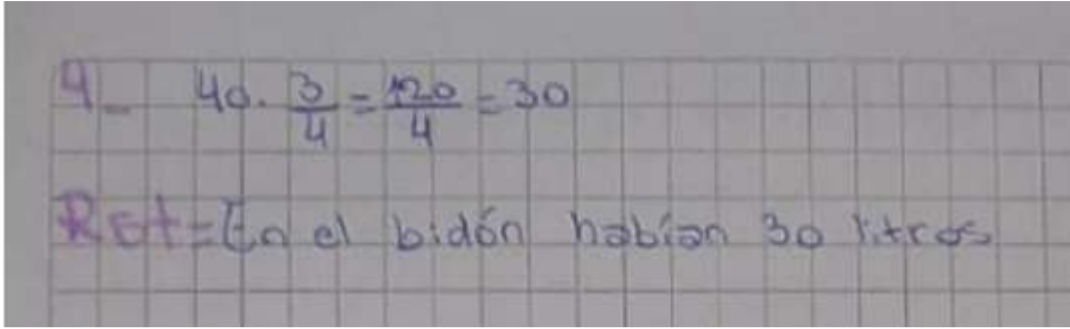 4- 40. 3/4 = 120/4 = 30
Rst = En el bidón habían 30 litros